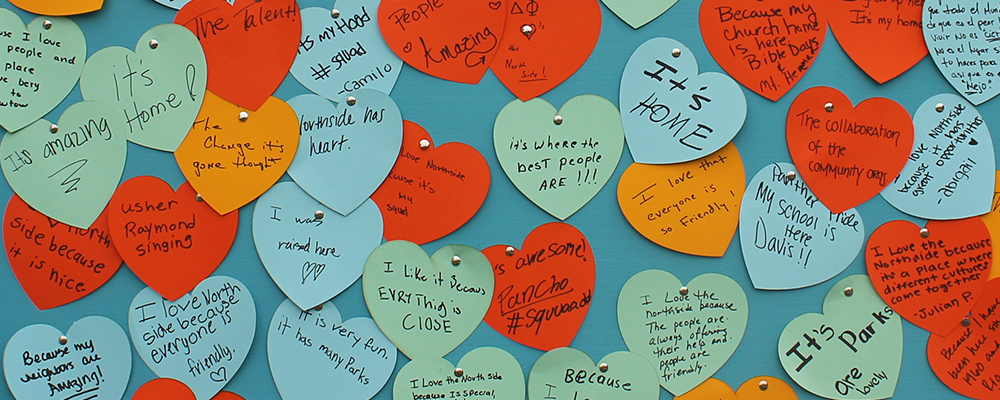 I love
people and
place
very
to
The Talent!
it's
Home!
It's amazing
It's my Hood
#squad
-Camilo
People
Amazing
ΔΦ
the
North
Side!
Because my
church home
is here.
Bible Days
Mt.
It's my home
The
Change it's
gone thought
Northside has
heart.
I Love Northside
cause it's
my
squad
it's where the
best people
ARE !!!
It's
HOME
I love that
everyone is
so friendly!
The collaboration
of the
community orgs.
love Northside
because it has
great opportunities
-Abigail
Panther Pride
My school is
Here
Davis!!
North
side because
it is nice.
usher
Raymond
singing
I was
raised here
I like it Becaus
EVRYThing is
ClOSE
is awesome!
Pancho
#Squuaadd
I love the
Northside because
its a place where
different cultures
come together
-Julian P.
Because my
neighbors are
Amazing!
I love North
side because
everyone is
friendly.
it is very fun.
it has many Parks
I Love the
Northside because
The people are
always offering
their help and.
people are
friendly.
It's
Parks
are
lovely
Because
been here
1960 and
I Love the North Side
because IS Special,
BECAUSE
I